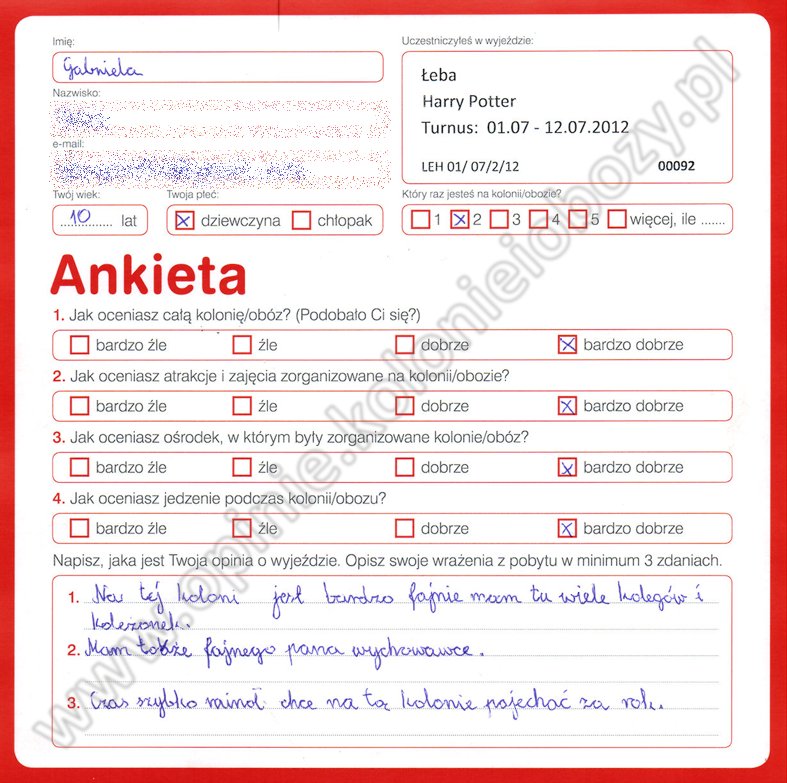 Imię:
Gabriela
Uczestniczyłeś w wyjeździe:
Łeba
Harry Potter
Turnus: 01.07 - 12.07.2012
LEH 01/ 07/2/12 00092
Nazwisko:
e-mail:
Twój wiek:
10 lat
Twoja płeć:
dziewczyna chłopak
Który raz jesteś na kolonii/obozie?
1 2 3 4 5 więcej, ile .......
Ankieta
1. Jak oceniasz całą kolonię/obóz? (Podobało Ci się?)
bardzo źle źle dobrze bardzo dobrze
2. Jak oceniasz atrakcje i zajęcia zorganizowane na kolonii/obozie?
bardzo źle źle dobrze bardzo dobrze
3. Jak oceniasz ośrodek, w którym były zorganizowane kolonie/obóz?
bardzo źle źle dobrze bardzo dobrze
4. Jak oceniasz jedzenie podczas kolonii/obozu?
bardzo źle źle dobrze bardzo dobrze
Napisz, jaka jest Twoja opinia o wyjeździe. Opisz swoje wrażenia z pobytu w minimum 3 zdaniach.
1. Na tej koloni jest bardzo fajnie mam tu wiele kolegów i
koleżonek.
2. Mam także fajnego pana wychowawce.
3. Czas szybko minoł chce na tą kolonie pojechać za rok.
www.opinie.kolonieiobozy.pl